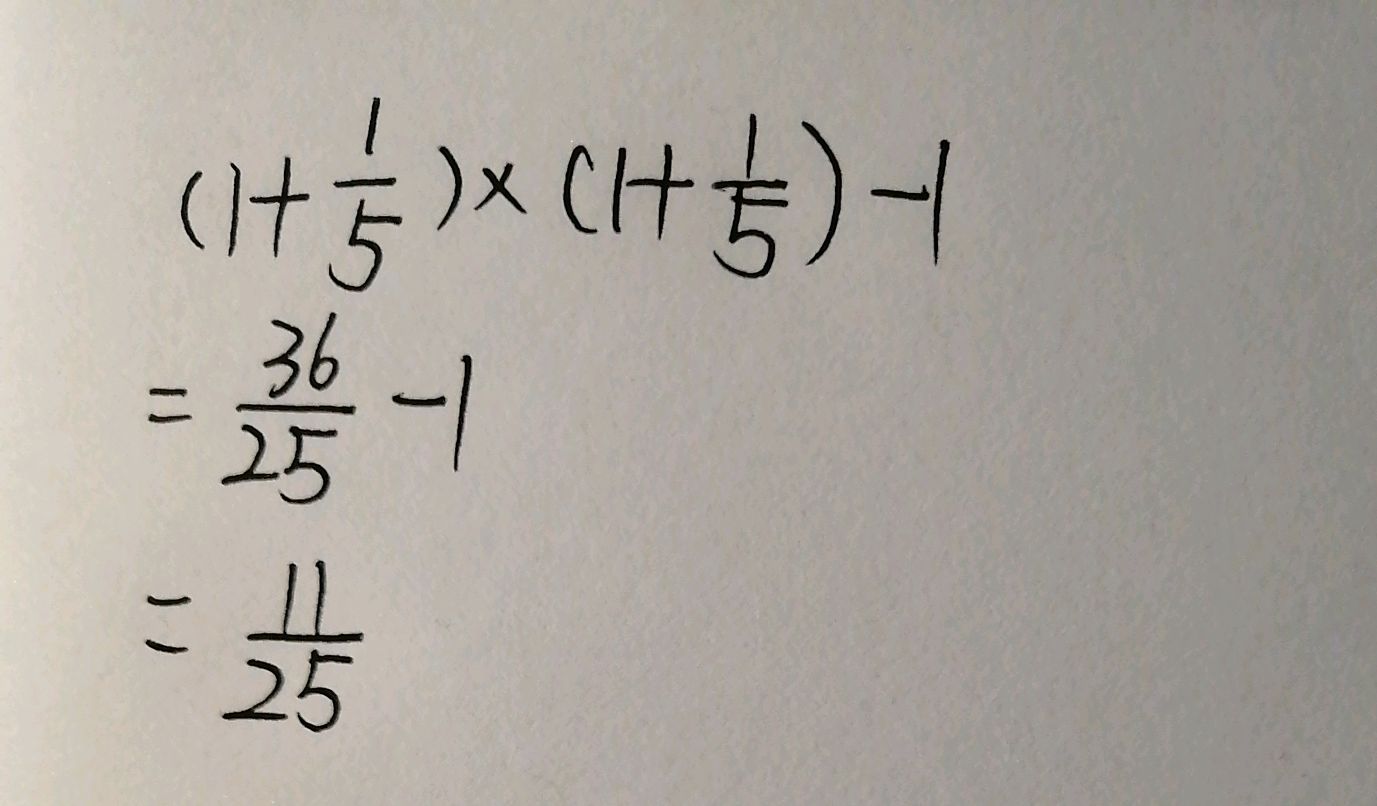 (1+1/5)×(1+1/5)-1
=36/25-1
=11/25